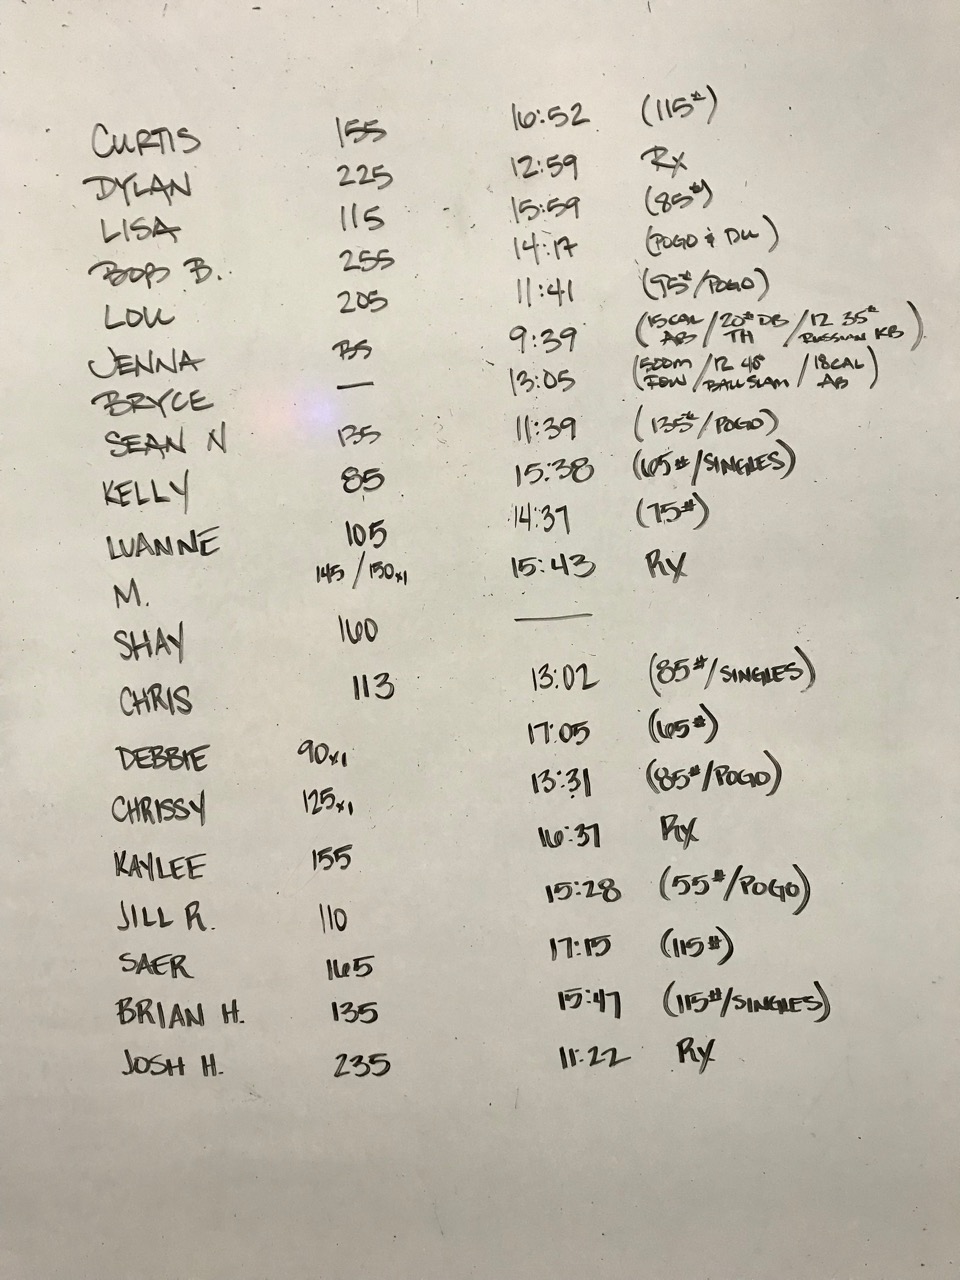 CURTIS 155 16:52 (115#)
DYLAN 225 12:59 Rx
LISA 115 15:59 (85#)
BOB B. 255 14:17 (POGO & DU)
LOU 205 11:41 (95#/POGO)
JENNA 135 9:39 (15CAL AB / 20# DB TH / 12 35# RUSSIAN KB)
BRYCE — 13:05 (500m ROW / 12 40# BALL SLAM / 18CAL AB)
SEAN N 135 11:39 (135#/POGO)
KELLY 85 15:38 (65#/SINGLES)
LUANNE 105 14:37 (75#)
M. 145/150x1 15:43 RX
SHAY 160 —
CHRIS 113 13:02 (85#/SINGLES)
DEBBIE 90x1 17:05 (65#)
CHRISSY 125x1 13:31 (85#/POGO)
KAYLEE 155 16:37 RX
JILL R. 110 15:28 (55#/POGO)
SAER 165 17:15 (115#)
BRIAN H. 135 15:47 (115#/SINGLES)
JOSH H. 235 11:22 RX